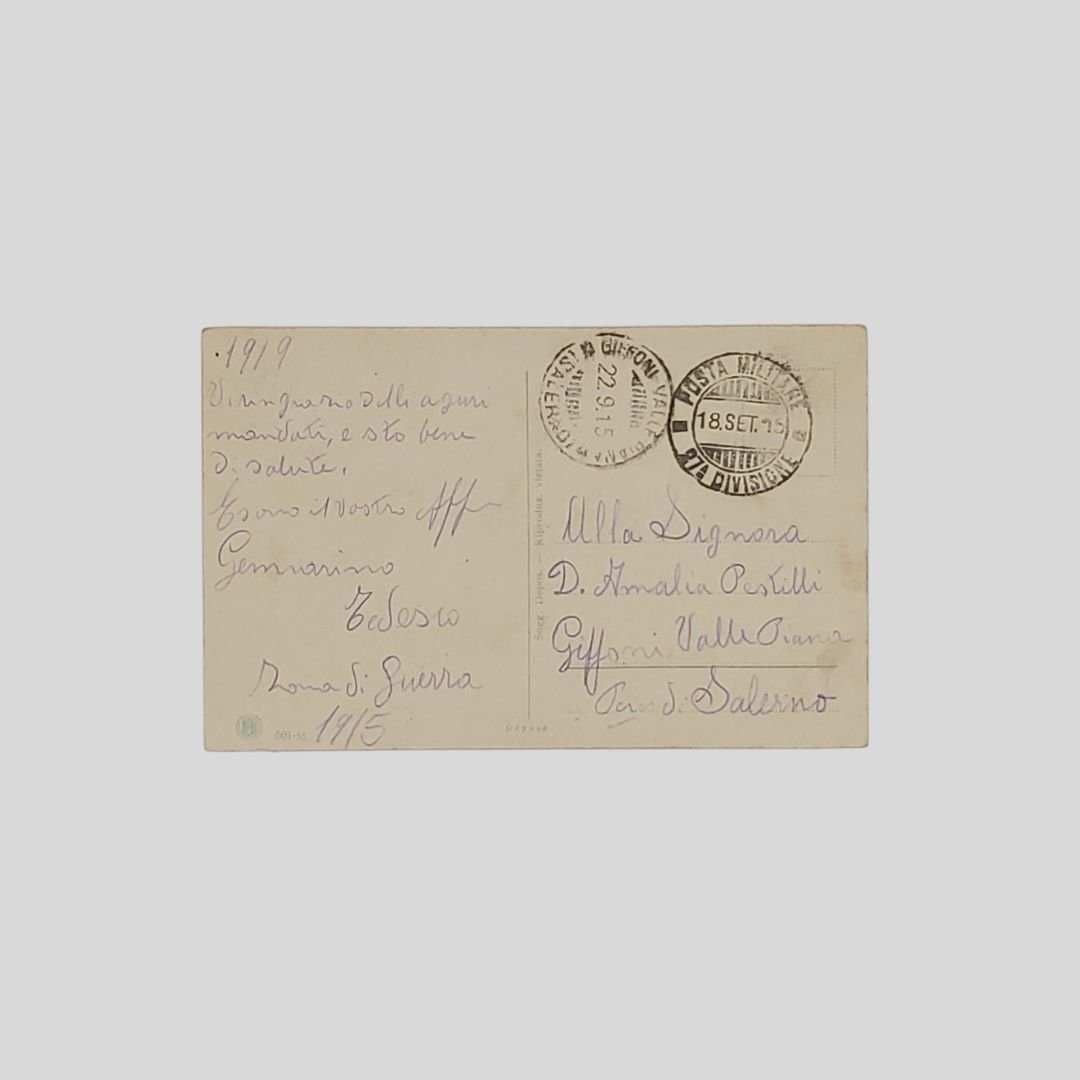 .1919
Vi ringrazio delli aguri
mandati, e sto bene
Di salute.
E sono il Vostro Aff
Gennarino
Tedesco
Zona di Guerra
1915
501-35
Déposé
Sogg. Depos. — Riproduz. vietata.
GIFFONI VALLE PIANA (SALERNO)
22.9.15
POSTA MILITARE
18.SET.15
27ª DIVISIONE
Alla Signora
D. Amalia Pestilli
Giffoni Valle Piana
di Salerno